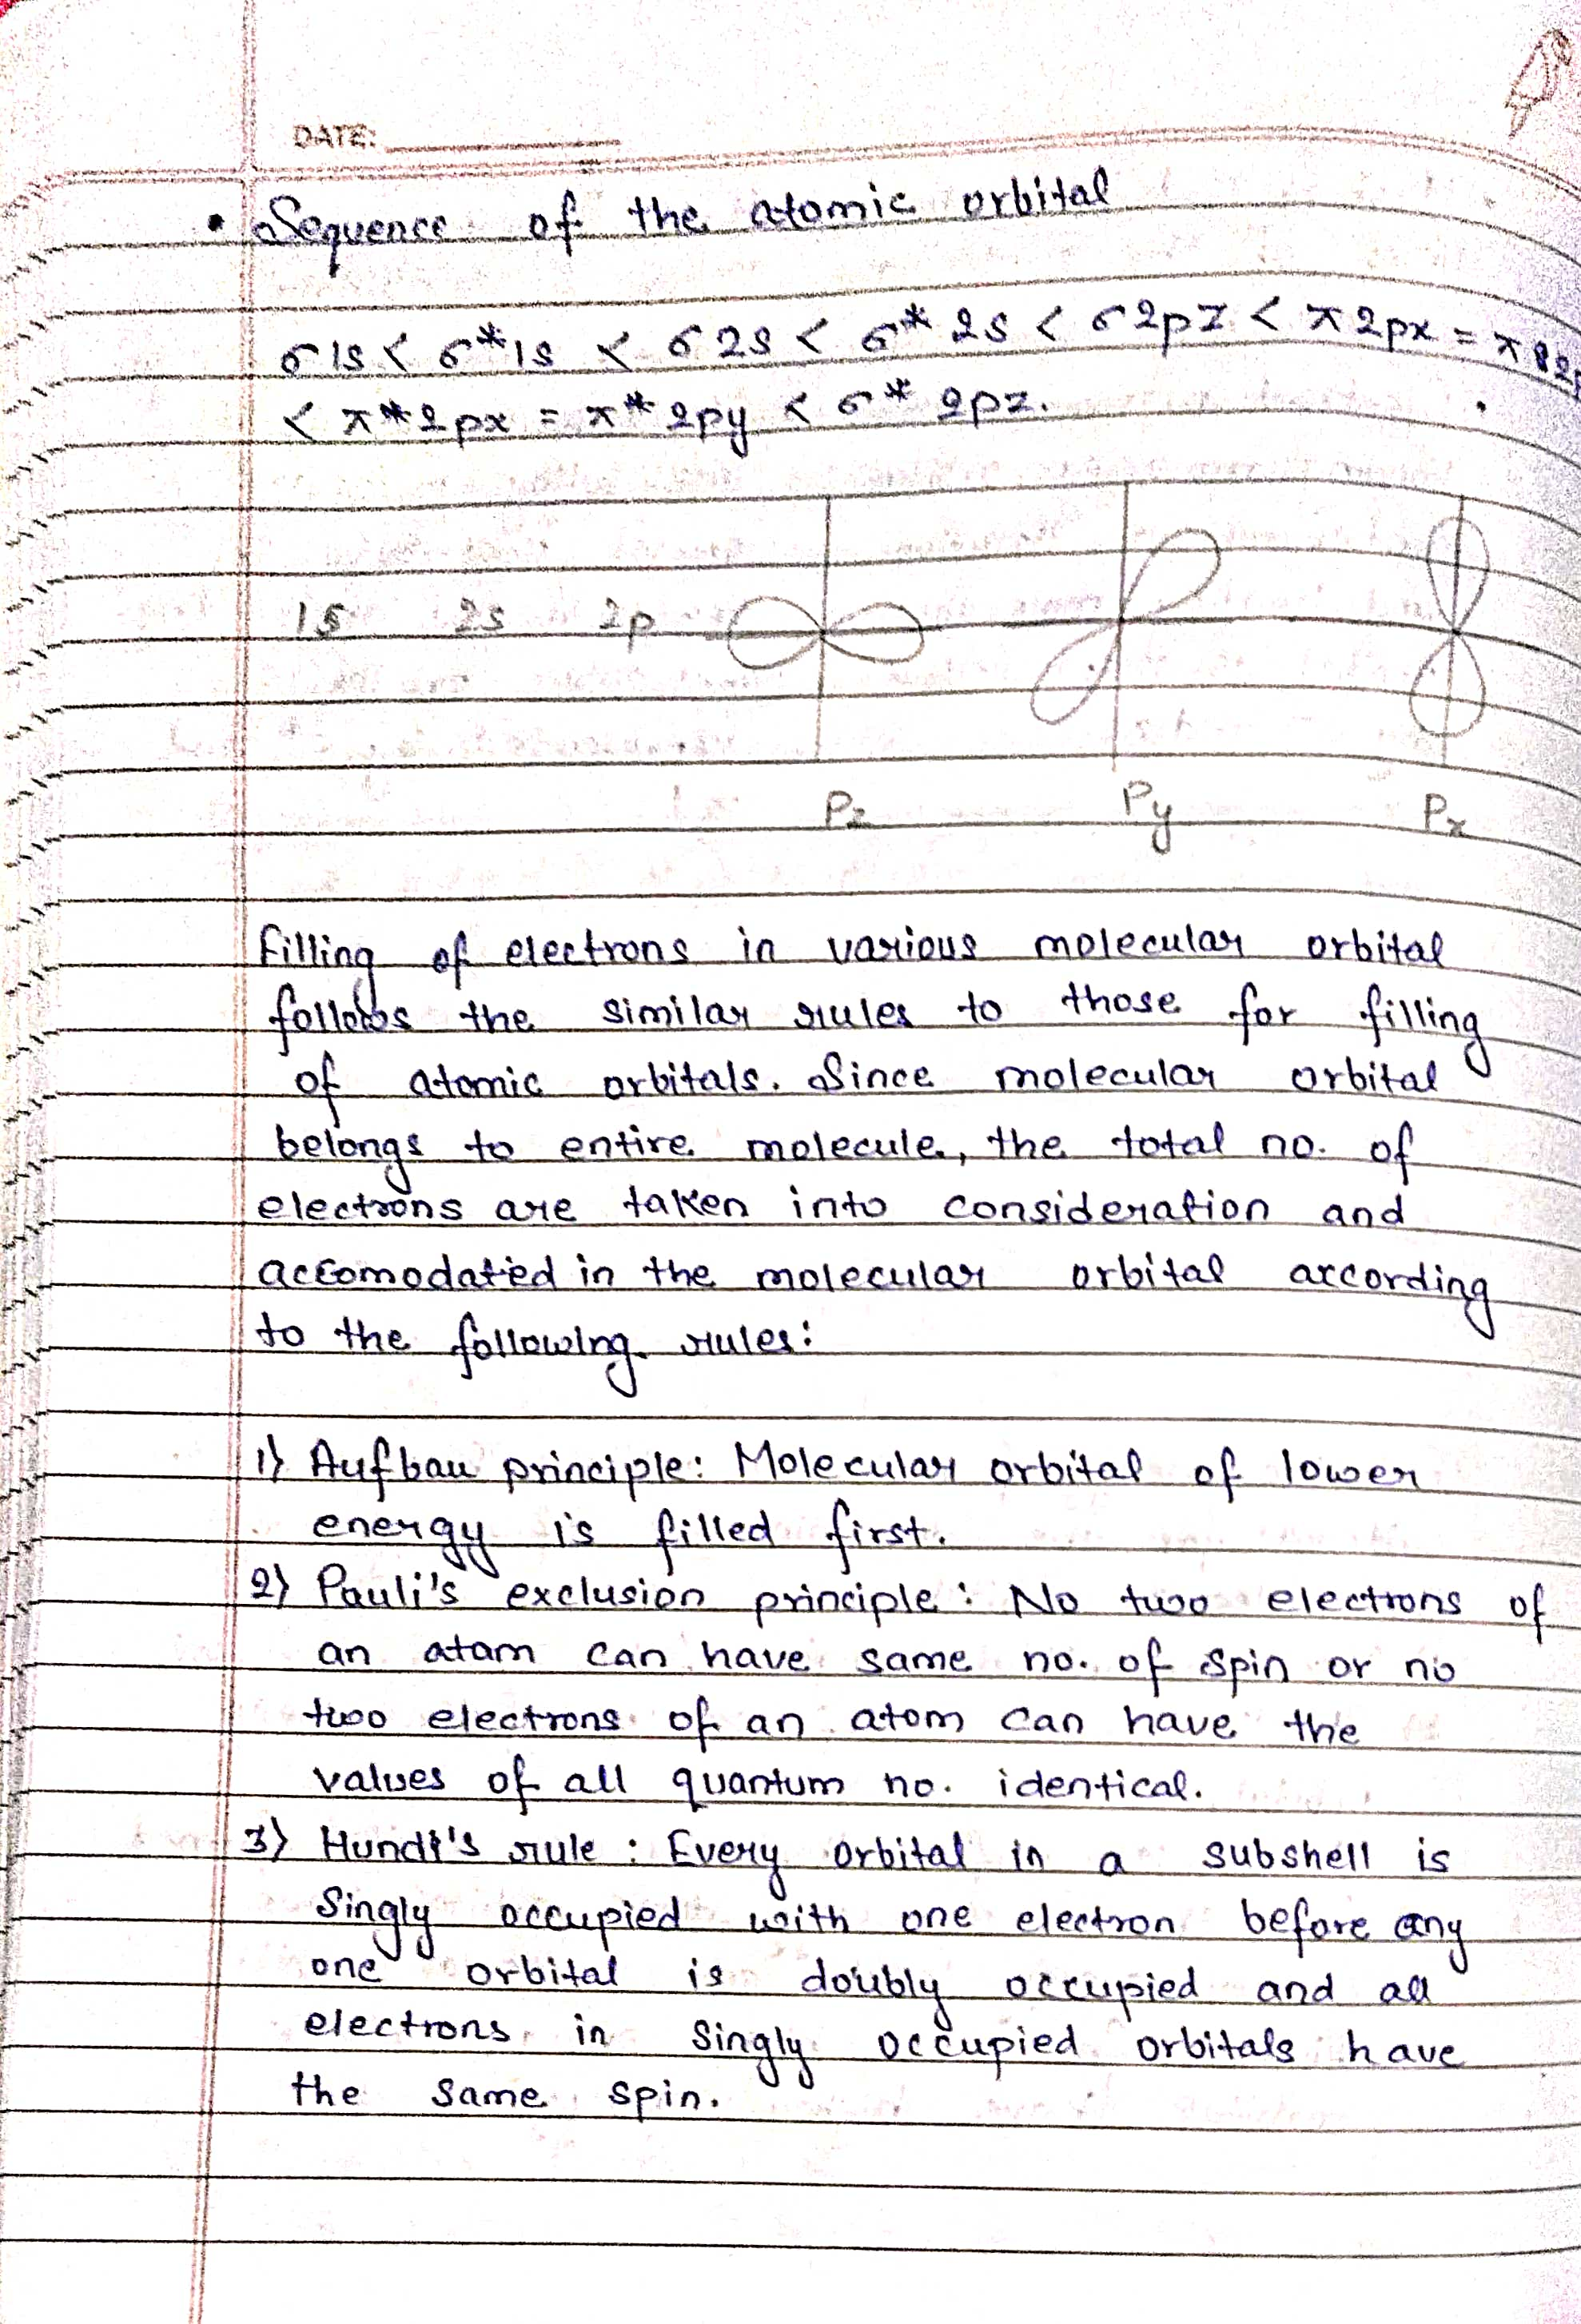 DATE:
• Sequence of the atomic orbital
σ1s < σ*1s < σ2s < σ*2s < σ2pz < π2px =
< π*2px = π*2py < σ*2pz.
1s 2s 2p
Pz Py Px
Filling of electrons in various molecular orbital
follows the similar rules to those for filling
of atomic orbitals. Since molecular orbital
belongs to entire molecule, the total no. of
electrons are taken into consideration and
accomodated in the molecular orbital according
to the following rules:
1) Aufbau principle: Molecular orbital of lower
energy is filled first.
2) Pauli's exclusion principle: No two electrons of
an atam can have same no. of spin or no
two electrons of an atom can have the
values of all quantum no. identical.
3) rule : Every orbital in a subshell is
Singly occupied with one electron before any
one orbital is doubly occupied and all
electrons in Singly occupied orbitals have
the same spin.